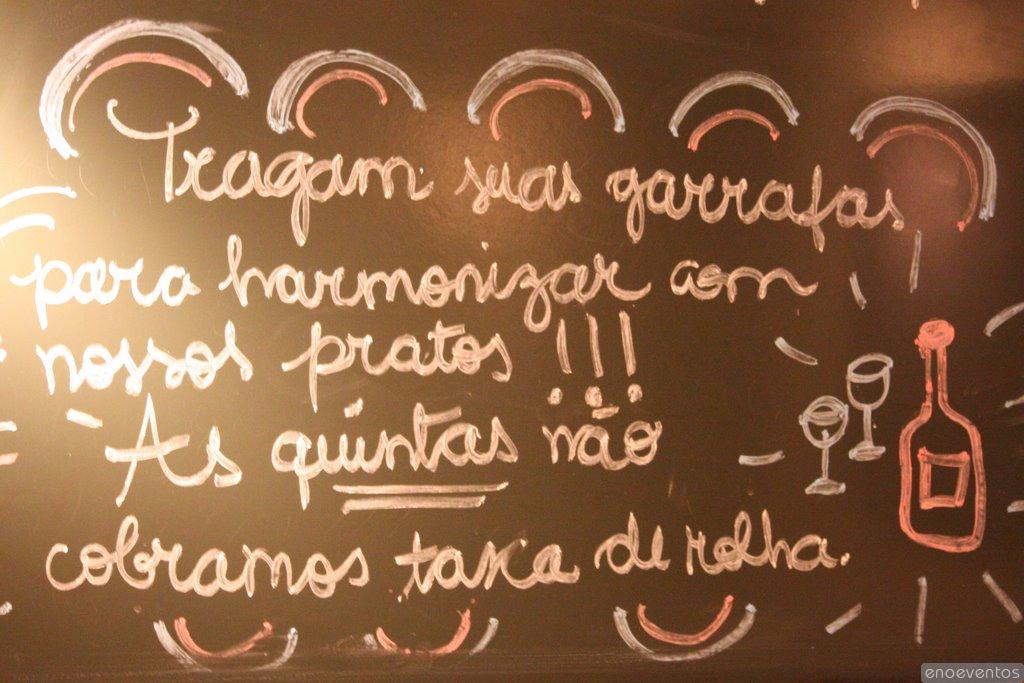 Tragam suas garrafas
para harmonizar com
nossos pratos !!!
As quintas não
cobramos taxa de rolha.
enoeventos